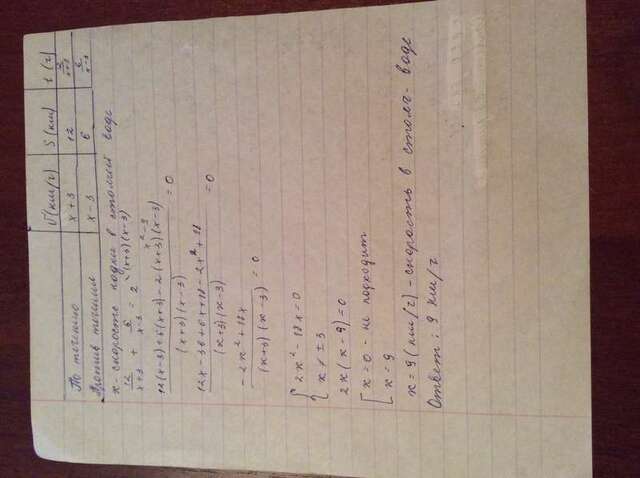 V(км/ч) S(км) t(ч)
По течению x+3 12 12/x+3
Против течения x-3 6 6/x-3
x - скорость лодки в стоячей воде
12/x+3 + 6/x-3 = 2 -(x+3)(x-3)
x²-9
12(x-3)+6(x+3)-2(x+3)(x-3)/(x+3)(x-3) = 0
12x-36+6x+18-2x²+18/(x+3)(x-3) = 0
-2x²+18x/(x+3)(x-3) = 0
{ 2x²-18x=0
x ≠ ±3
2x(x-9)=0
[ x=0 - не подходит
x=9
x=9(км/ч) - скорость в стояч. воде
Ответ: 9 км/ч